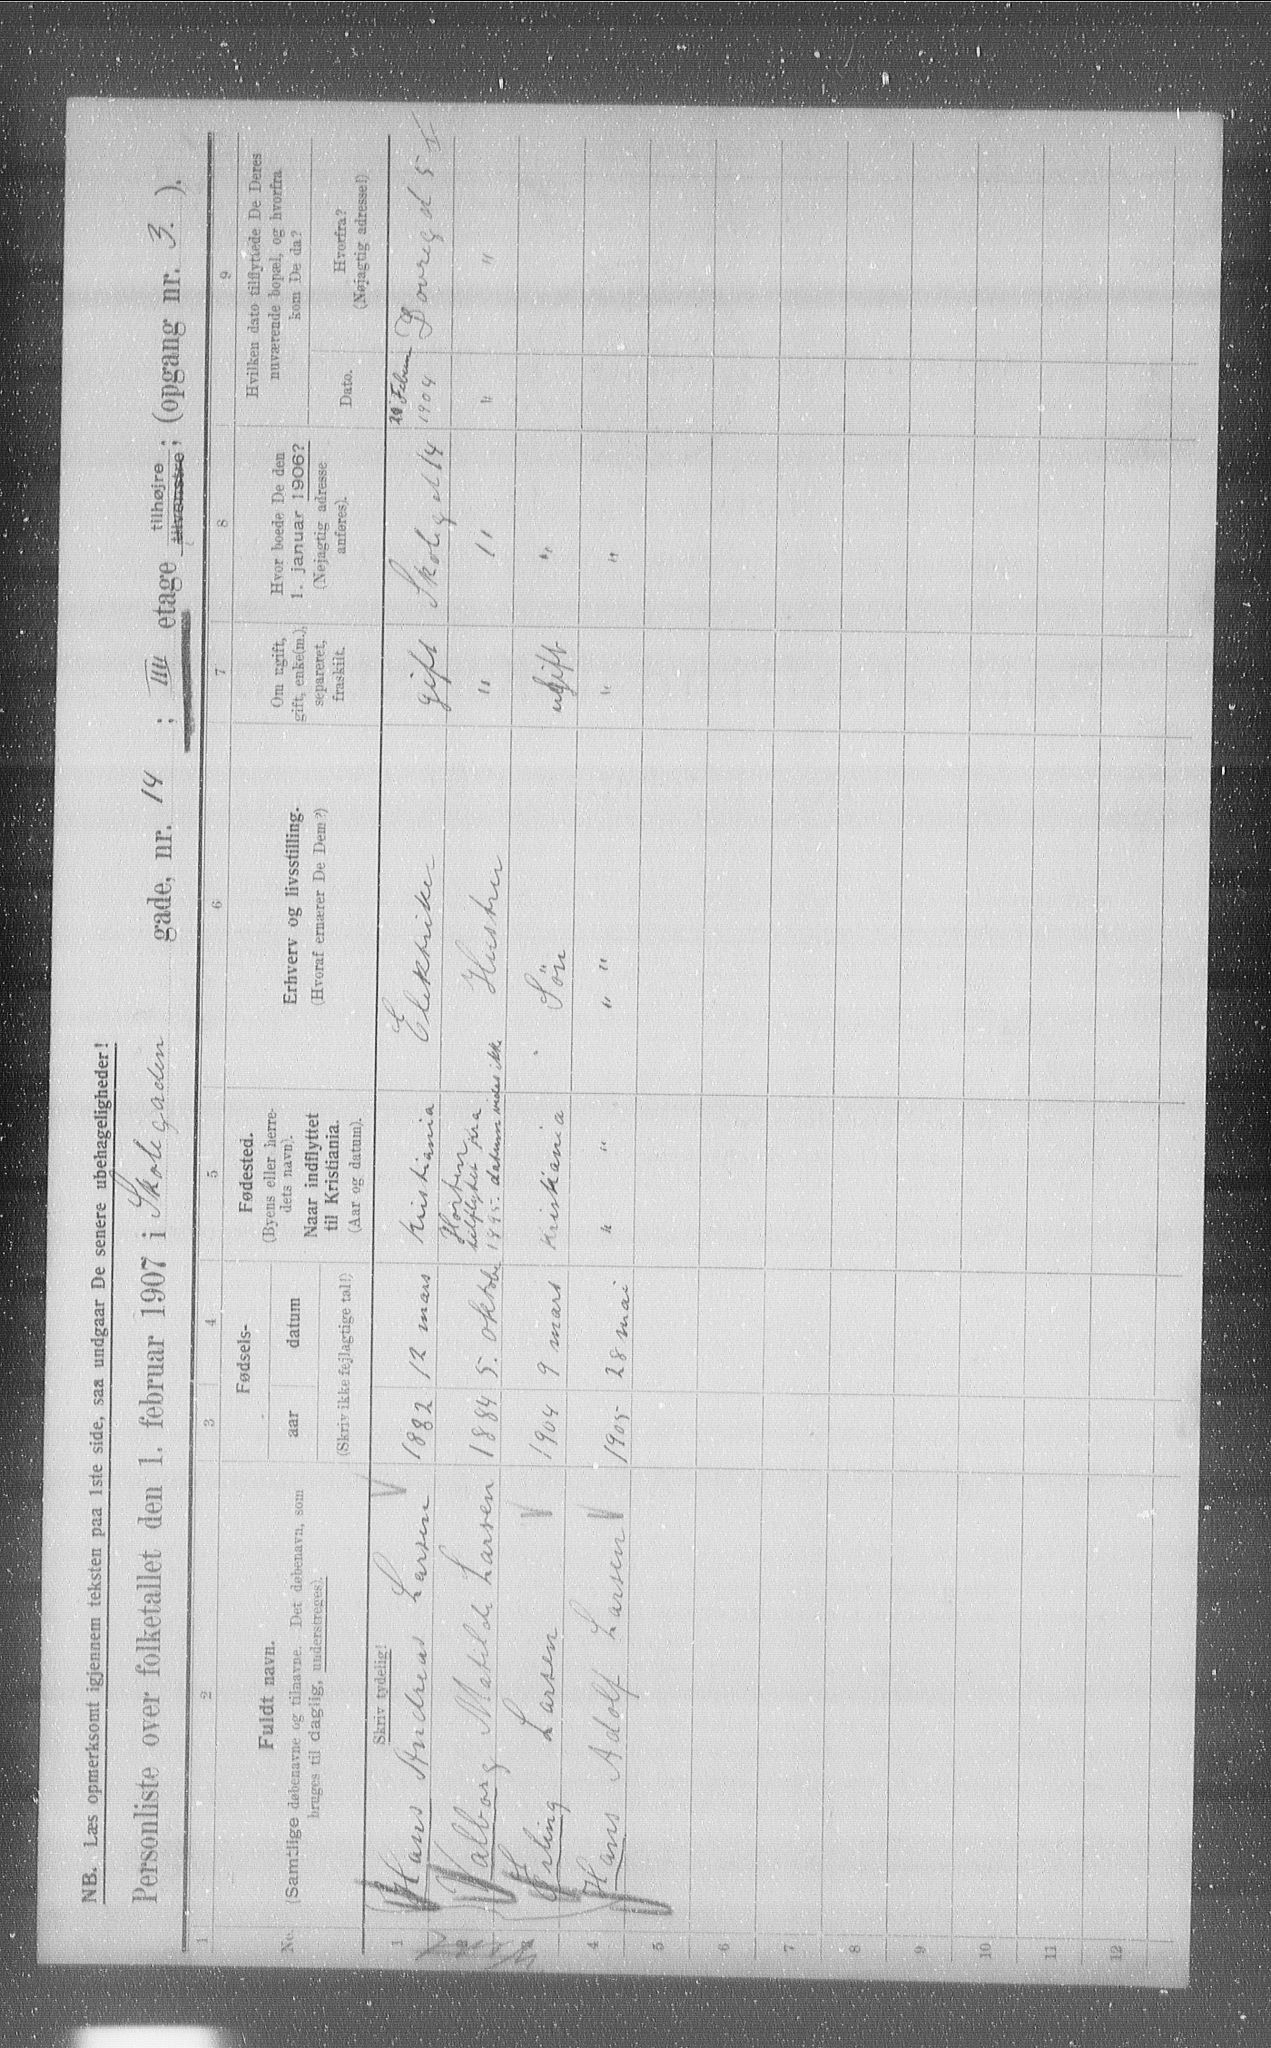 NB. Læs opmerksomt igjennem teksten paa 1ste side, saa undgaar De senere ubehageligheder!
Personliste over folketallet den 1. februar 1907 i Skolegaden gade, nr. 14 ; IIII etage tilhøjre tilvenstre ; (opgang nr. 3. ).
1 2 3 4 5 6 7 8 9
No. Fuldt navn. (Samtlige døbenavne og tilnavne. Det døbenavn, som bruges til daglig, understreges).
Fødsels-
aar datum
(Skriv ikke fejlagtige tal!)
Fødested.
(Byens eller herredets navn).
Naar indflyttet til Kristiania.
(Aar og datum).
Erhverv og livsstilling.
(Hvoraf ernærer De Dem?)
Om ugift, gift, enke(m.), separeret, fraskilt.
Hvor boede De den 1. januar 1906?
(Nøjagtig adresse anføres).
Hvilken dato tilflyttede De Deres nuværende bopæl, og hvorfra kom De da?
Dato. Hvorfra? (Nøjagtig adresse!)
Skriv tydelig!
1 Hans Andreas Larsen 1882 12 mars Kristiania Elektriker gift Skoleg d 14 1904
2 Valborg Matilde Larsen 1884 5. oktobe Horten tilflyttet fra 1895. datum vides ikke Hustru " " " "
3 Erling Larsen 1904 9 mars Kristiania Sön ugift "
4 Hans Adolf Larsen 1905 28 mai " " " " " "
5
6
7
8
9
10
11
12